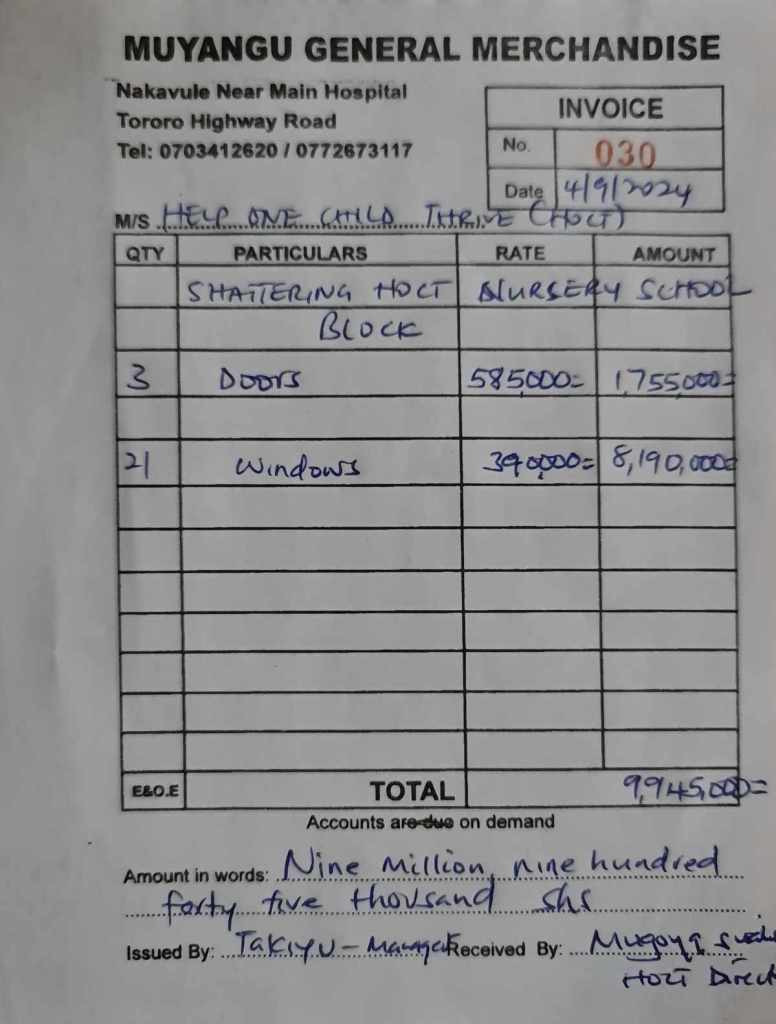 MUYANGU GENERAL MERCHANDISE
Nakavule Near Main Hospital
Tororo Highway Road
Tel: 0703412620 / 0772673117
INVOICE
No. 030
Date 4/9/2024
M/S HELP ONE CHILD THRIVE (HOCT)
QTY PARTICULARS RATE AMOUNT
SHATTERING HOCT NURSERY SCHOOL
BLOCK
3 Doors 585,000= 1,755,000=
21 Windows 390,000= 8,190,000=
E&O.E TOTAL 9,945,000=
Accounts are due on demand
Amount in words: Nine Million, nine hundred
forty five thousand shs
Issued By: TAKIYU - Manager Received By: Mugoya
HOCT Direct